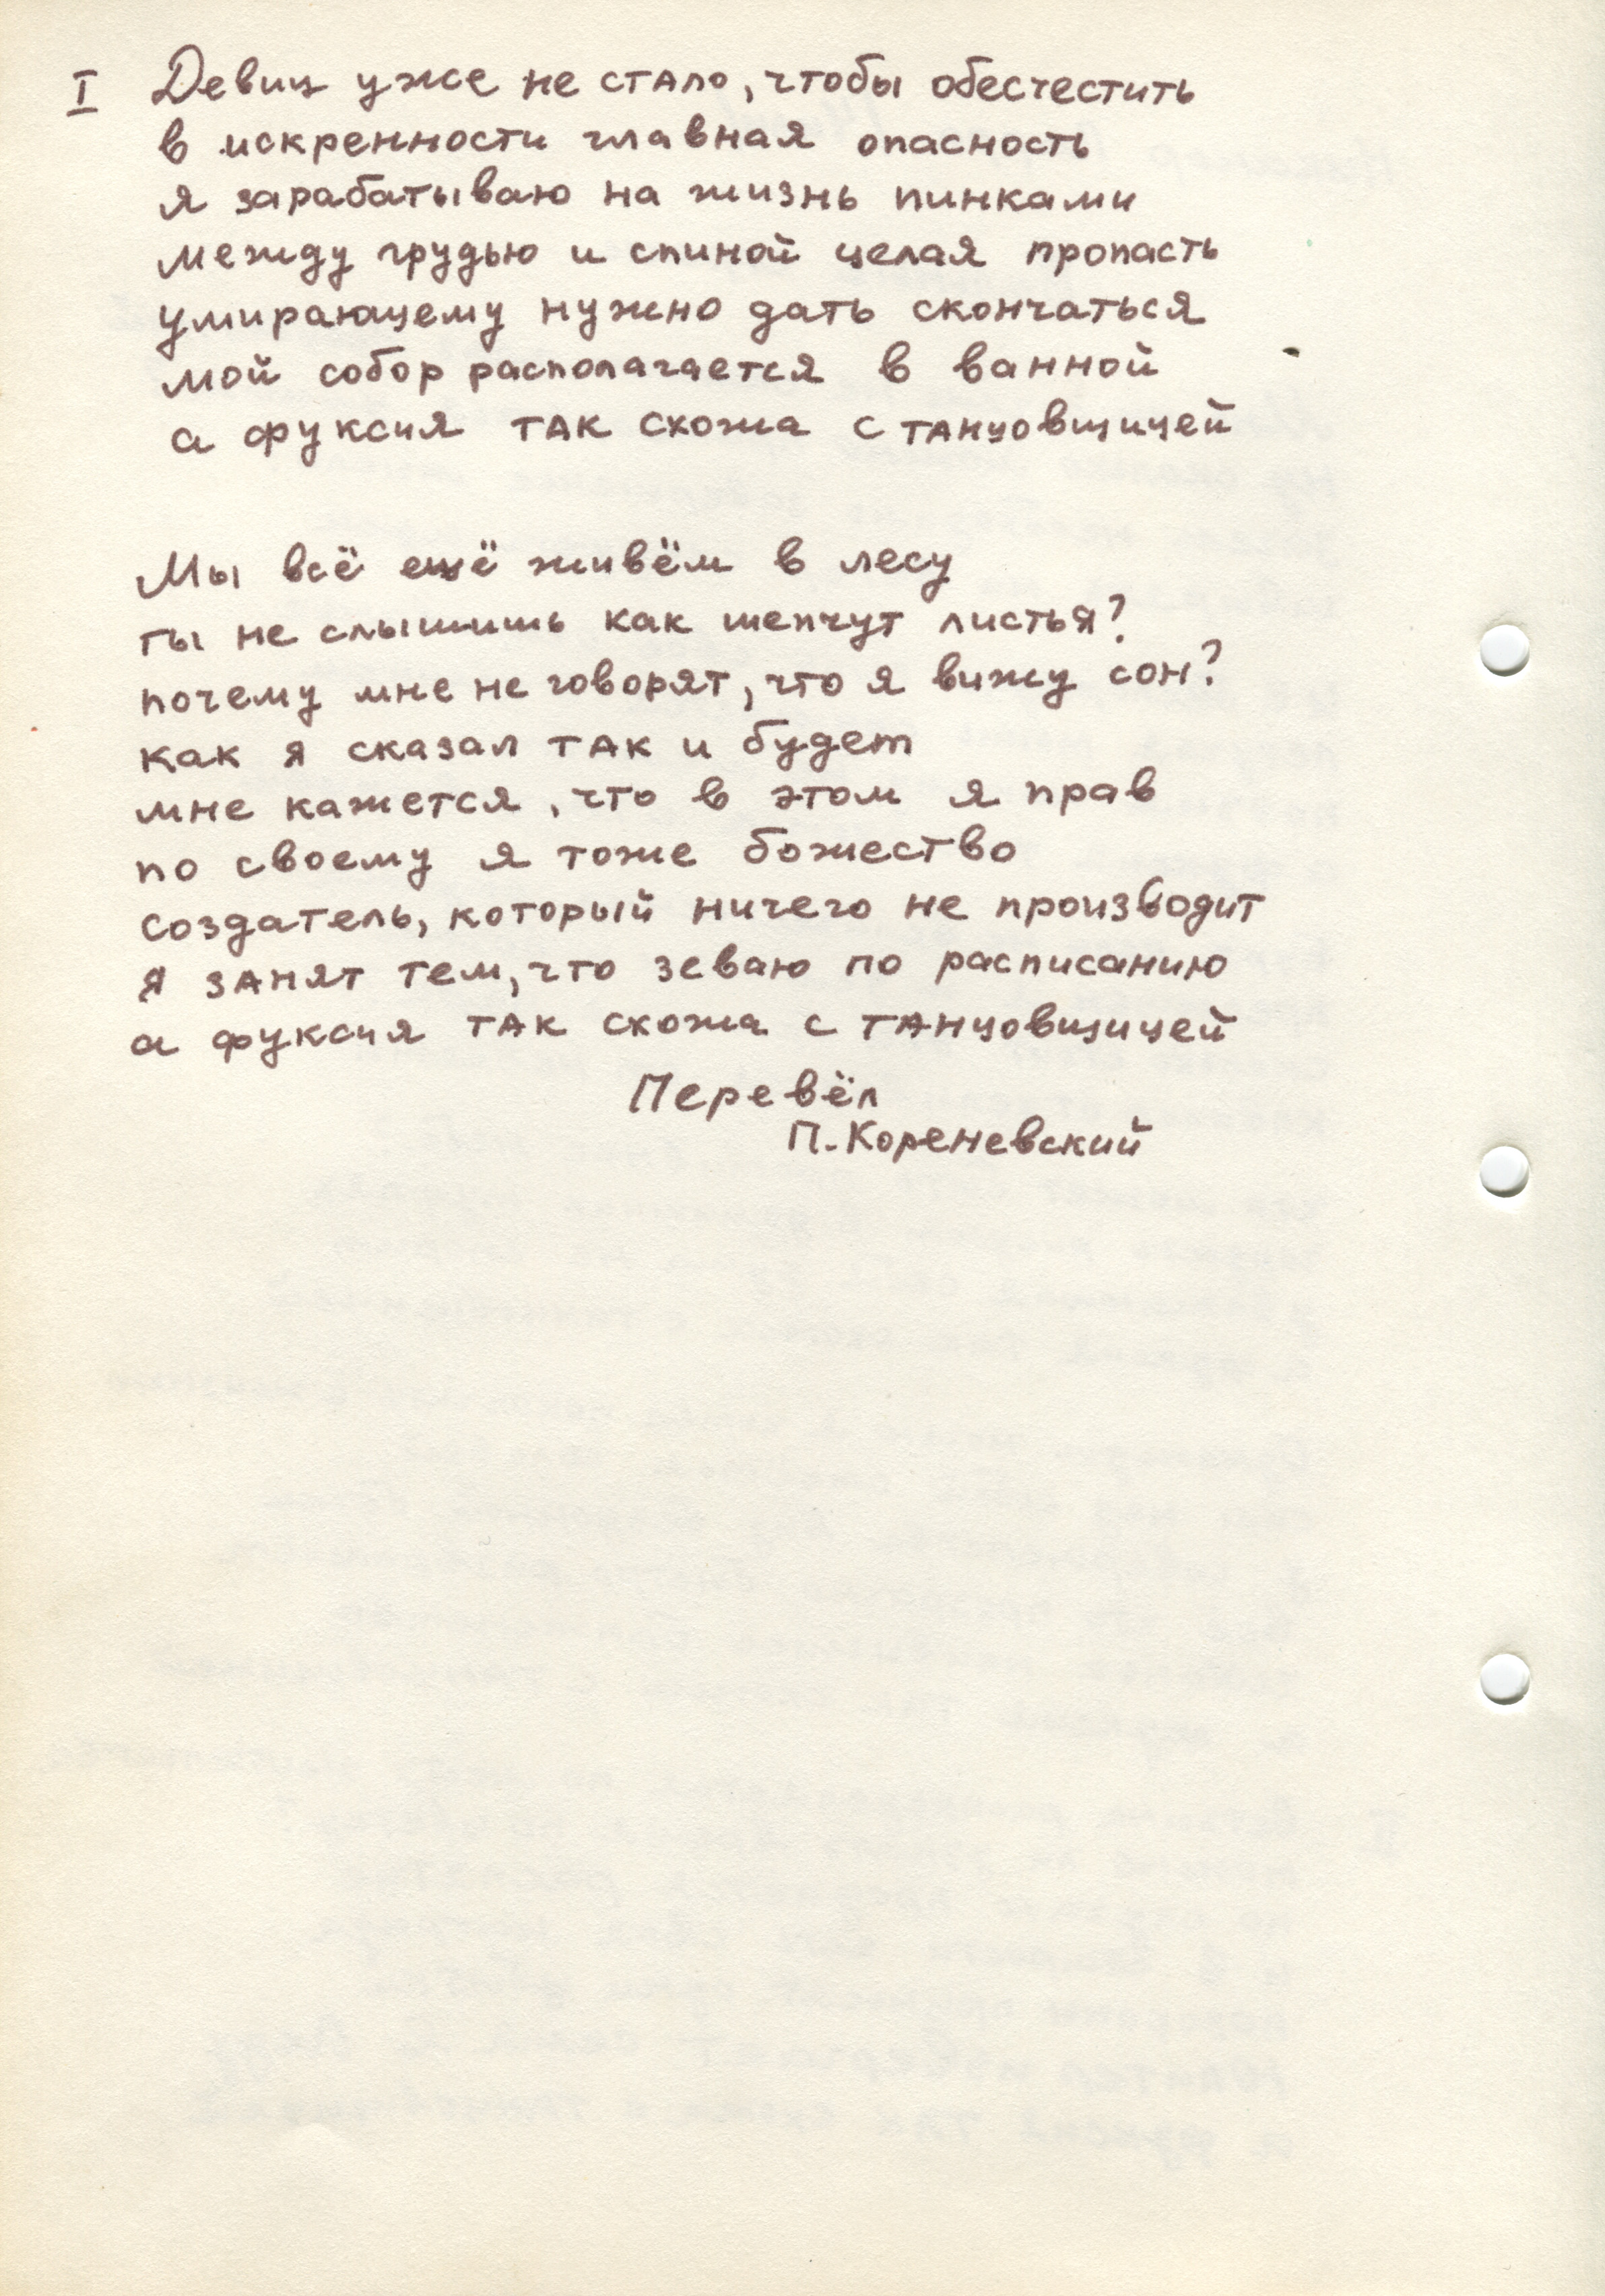 I Девиц уже не стало, чтобы обесчестить
в искренности главная опасность
я зарабатываю на жизнь пинками
между грудью и спиной целая пропасть
умирающему нужно дать скончаться
мой собор располагается в ванной
а фуксия так схожа с танцовщицей
Мы всё ещё живём в лесу
ты не слышишь как шепчут листья?
почему мне не говорят, что я вижу сон?
как я сказал так и будет
мне кажется, что в этом я прав
по своему я тоже божество
создатель, который ничего не производит
я занят тем, что зеваю по расписанию
а фуксия так схожа с танцовщицей
Перевёл
П. Кореневский